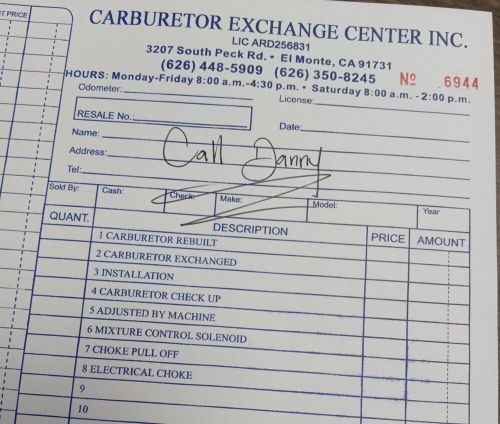 IT PRICE
CARBURETOR EXCHANGE CENTER INC.
LIC ARD256831
3207 South Peck Rd. • El Monte, CA 91731
(626) 448-5909 (626) 350-8245 Nº 6944
HOURS: Monday-Friday 8:00 a.m.-4:30 p.m. • Saturday 8:00 a.m. - 2:00 p.m.
Odometer: License:
RESALE No. Date:
Name:
Call Danny
Address:
Tel:
Sold By: Cash: Check: Make: Model: Year
QUANT. DESCRIPTION PRICE AMOUNT
1 CARBURETOR REBUILT
2 CARBURETOR EXCHANGED
3 INSTALLATION
4 CARBURETOR CHECK UP
5 ADJUSTED BY MACHINE
6 MIXTURE CONTROL SOLENOID
7 CHOKE PULL OFF
8 ELECTRICAL CHOKE
9
10